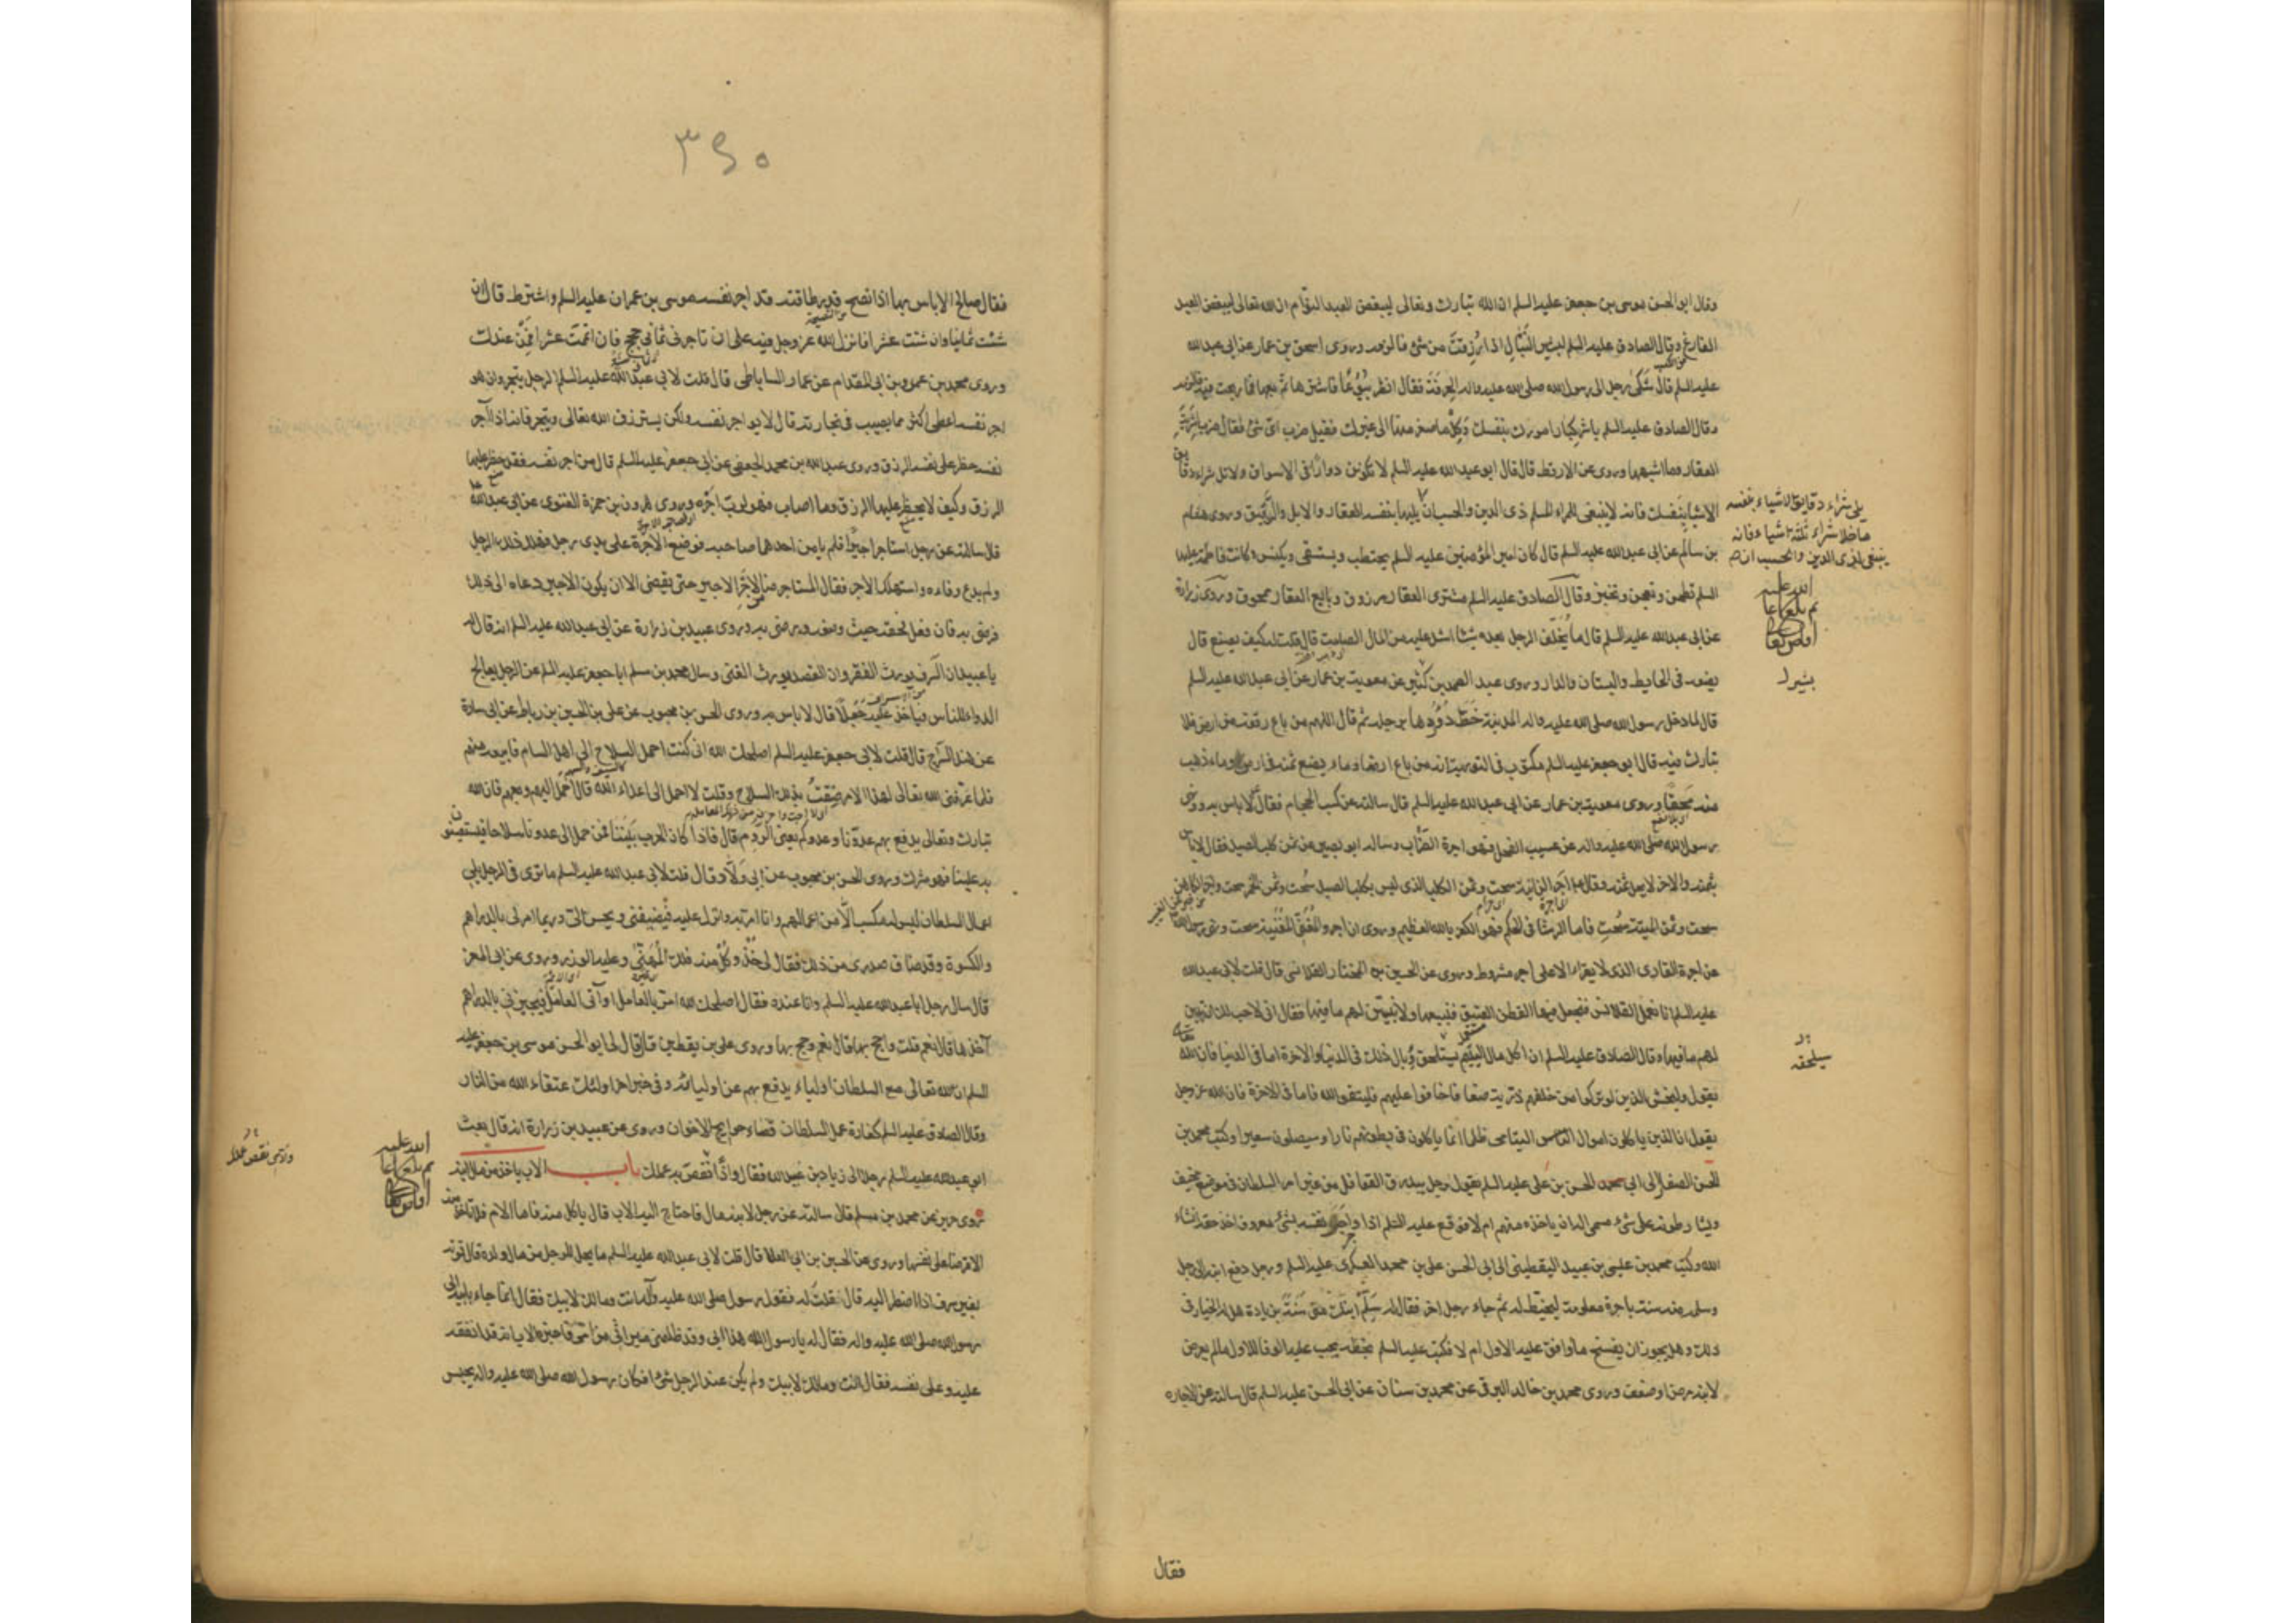 وقال ابو الحسن موسى بن جعفر عليه السلم ان الله تبارك وتعالى ليبغض العبد النوّام ان الله تعالى ليبغض العبد
الفارغ وقال الصادق عليه السلم لبعض اذا رُزقتَ من شئ فالزمه وروى اسحق بن عمار عن ابي عبد الله
عليه السلم قال شكى رجل الى رسول الله صلى الله عليه واله الحرفة فقال انظر بُيُوعًا فاشترها ثم بعها فما ربحت فيه فالزمه
وقال الصادق عليه السلم باشر كبار امورك بنفسك وكِلْ ما صغر منها الى غيرك فقيل ضرب اى شئ فقال ضرب اشرية
العقار وما اشبهها وروى عن الارقط قال قال ابو عبد الله عليه السلم لا تكونن دوارًا فى الاسواق ولا تلى شراء دقايق
الاشياء بنفسك فانه لا ينبغى للمراء المسلم ذى الدين والحسب ان يليها بنفسه العقار والابل والرقيق وروى هشام
بن سالم عن ابى عبد الله عليه السلم قال كان امير المؤمنين عليه السلم يحتطب ويستقى ويكنس وكانت فاطمة عليها
السلم تطحن وتعجن وتخبز وقال الصادق عليه السلم مشترى العقار مرزوق وبايع العقار ممحوق وروى زرارة
عن ابى عبد الله عليه السلم قال ما يُخلّف الرجل بعده شيئا اشد عليه من المال الصامت قال قلت له كيف يصنع قال
يضعه فى الحايط والبستان والدار وروى عبد الصمد بن كثير عن معوية بن عمار عن ابى عبد الله عليه السلم
قال لما دخل رسول الله صلى الله عليه واله المدينة خطّ دُوُرها برجله ثم قال اللهم من باع رقعة من ارض فلا
تبارك فيه قال ابو جعفر عليه السلم مكتوب فى التورية انه من باع ارضا وماء ولم يضع ثمنه فى ارض وماء ذهب
منه محقًا وروى معوية بن عمار عن ابى عبد الله عليه السلم قال سالته عن كسب الحجام فقال لا باس به ونهى
رسول الله صلى الله عليه واله عن عسيب الفحل وهو اجرة الضراب وساله ابو بصير عن ثمن كلب الصيد فقال لا باس
بثمنه والاخر لا يحل ثمنه وقال اجر الزانية سحت وثمن الكلب الذى ليس بكلب الصيد سُحت وثمن الخمر سحت واجر الكاهن
سحت وثمن الميتة سُحت فاما الرشا فى الحكم فهو الكفر بالله العظيم وروى ان اجر المغنى والمغنية سحت
عن اجرة القارى الذى لا يقراء الا على اجر مشروط وروى عن الحسين بن المختار القلانسى قال قلت لابى عبد الله
عليه السلم انا نعمل القلانس فنجعل فيها القطن العتيق فنبيعها ولا نبيّن لهم ما فيها فقال انى لاحب لك ان تبين
لهم ما فيها وقال الصادق عليه السلم ان اكل مال اليتيم سيلحق وبال ذلك فى الدنيا والاخرة اما فى الدنيا فان الله
يقول وليخش الذين لو تركوا من خلفهم ذرية ضعافا خافوا عليهم فليتقوا الله فاما فى الاخرة فان الله عز وجل
يقول ان الذين ياكلون اموال اليتامى ظلما انما ياكلون فى بطونهم نارا وسيصلون سعيرا وكتب محمد بن
الحسن الصفار الى ابى محمد الحسن بن على عليه السلم يقول رجل يبذرق القوافل من غير امر السلطان فى موضع مخيف
ويشارطونه على شئ مسمى اله ان ياخذه منهم ام لا فوقع عليه السلم اذا واجر نفسه بشئ معروف اخذ حقه انشاء
الله وكتب محمد بن عيسى بن عبيد اليقطينى الى ابى الحسن على بن محمد العسكرى عليه السلم ورجل دفع ابنه الى رجل
وسلمه منه سنة باجرة معلومة ليخيط له ثم جاء رجل اخر فقال له سَلِّم ابنك منى سَنَة بزيادة هل له الخيار فى
ذلك وهل يجوز ان يفسخ ما وافق عليه الاول ام لا فكتب عليه السلم بخطه يجب عليه الوفا للاول ما لم يعرض
لابنه مرض او ضعف وروى محمد بن خالد البرقى عن محمد بن سنان عن ابى الحسن عليه السلم قال سالته عن الاجارة
فقال
يلى شراء دقايق الاشياء بنفسه
ما خلا شراء ثلثة اشياء فانه
ينبغى لذى الدين والحسب ان
سيلحقه
٣٤٥
فقال صالح لا باس بها اذا نصح قدر طاقته قد اجر نفسه موسى بن عمران عليه السلم واشترط قال ان
شئت ثمانيا وان شئت عشرا فانزل الله عز وجل فيه على ان تاجرنى ثمانى حجج فان اتممت عشرا فمن عندك
وروى محمد بن عمرو بن ابى المقدام عن عمار الساباطى قال قلت لابى عبد الله عليه السلم الرجل يتجر وان هو
اجر نفسه اعطى اكثر مما يصيب فى تجارته قال لا يواجر نفسه ولكن يسترزق الله تعالى ويتجر فانه اذا آجر
نفسه حظر على نفسه الرزق وروى عبد الله بن محمد الجعفى عن ابى جعفر عليه السلم قال من اجر نفسه فقد حظر عليها
الرزق وكيف لا يحظر عليها الرزق وما اصاب فهو لرب اجره وروى هرون بن حمزة الغنوى عن ابى عبد الله
قال سالته عن رجل استاجر اجيرا فلم يامن احدهما صاحبه فوضع الاجرة على يدى رجل فهلك ذلك الرجل
ولم يدع وفاء واستهلك الاجر فقال المستاجر ضامن لاجر الاجير حتى يقضى الا ان يكون الاجير دعاه الى ذلك
فرضى به فان فعل فحقه حيث وضعه ورضى به وروى عبيد بن زرارة عن ابى عبد الله عليه السلم انه قال له
يا عبيد ان السرف يورث الفقر وان القصد يورث الغنى وسال محمد بن مسلم ابا جعفر عليه السلم عن الرجل يعالج
الدواء للناس فياخذ عليه جُعلًا قال لا باس به وروى الحسن بن محبوب عن على بن الحسين بن رباط عن ابى سارة
عن هند السراج قال قلت لابى جعفر عليه السلم اصلحك الله انى كنت احمل السلاح الى اهل الشام فابيعه منهم
فلما عرفنى الله تعالى هذا الامر ضقتُ بذلك السلاح وقلت لا احمل الى اعداء الله قال احمل اليهم وبعهم فان الله
تبارك وتعالى يدفع بهم عدونا وعدوكم يعنى الروم قال فاذا كان الحرب بيننا فمن حمل الى عدونا سلاحا يستعينون
به علينا فهو مشرك وروى الحسن بن محبوب عن ابى ولاد قال قلت لابى عبد الله عليه السلم ما ترى فى الرجل يلى
اعمال السلطان ليس له مكسب الا من اعمالهم وانا امر به وانزل عليه فيضيفنى ويحسن الىّ وربما امر لى بالدراهم
والكسوة وقد ضاق صدرى من ذلك فقال لى خذ وكل منه فلك المهنى وعليه الوزر وروى عن ابى المعزا
قال سال رجل ابا عبد الله عليه السلم وانا عنده فقال اصلحك الله امر بالعامل او آتى العامل فيجيزنى بالدراهم
آخذها قال نعم قلت واحج بها قال نعم وحج بها وروى على بن يقطين قال قال لى ابو الحسن موسى بن جعفر عليه
السلم ان لله تعالى مع السلطان اولياء يدفع بهم عن اوليائه وفى خبر اخر اولئك عتقاء الله من النار
وقال الصادق عليه السلم كفارة عمل السلطان قضاء حوايج الاخوان وروى عن عبيد بن زرارة انه قال بعث
ابو عبد الله عليه السلم رجلا الى زياد بن عبيد الله فقال وانّ نقص به عملك باب الاب ياخذ من مال ابنه
روى حريز عن محمد بن مسلم قال سالته عن رجل لابنه مال فاحتاج اليه الاب قال ياكل منه فاما الام فلا تاخذ منه
الا قرضا على نفسها وروى عن الحسين بن ابى العلا قال قلت لابى عبد الله عليه السلم ما يحل للرجل من مال ولده قال قوته
بغير سرف اذا اضطر اليه قال فقلت له فقول رسول الله صلى الله عليه وآله انت ومالك لابيك فقال انما جاء بابيه الى
رسول الله صلى الله عليه واله فقال له يا رسول الله هذا ابى وقد ظلمنى ميراثى من امى فاخبره الاب انه قد انفقه
عليه وعلى نفسه فقال انت ومالك لابيك ولم يكن عند الرجل شئ افكان رسول الله صلى الله عليه واله يحبس